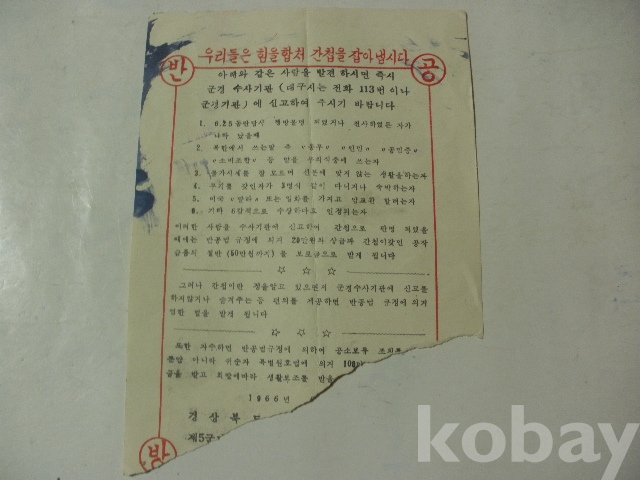 우리들은 힘을합쳐 간첩을 잡아냅시다
반
공
아래와 같은 사람을 발견 하시면 즉시
군경 수사기관 (대구지는 전화 113번 이나
군경기관) 에 신고하여 주시기 바랍니다
1. 6.25동란당시 행방불명 되었거나 전사하였든 자가
나타 났을때
2. 북한에서 쓰는말 즉 "동무" "인민" "공민증"
"소비조합" 등 말을 무의식중에 쓰는자
3. 물가시세를 잘 모르며 신분에 맞지 않는 생활을하는자
4. 무기를 갖인자가 3명식 같이 다니거나 숙박하는자
5. 미국 "딸라" 또는 일화를 가지고 암표환 할려는자
6. 기타 6감적으로 수상하다고 인정되는자
이러한 사람을 수사기관에 신고하여 간첩으로 판명 되었을
때에는 반공법 규정에 의거 20만원의 상금과 간첩이갖인 공작
금품의 절반 (50만원까지) 을 보로금으로 받게 됩니다
☆ ☆ ☆
그러나 간첩이란 정을알고 있으면서 군경수사기관에 신고를
하지않거나 숨겨주는 등 편의를 제공하면 반공법 규정에 의거
엄한 벌을 받게 됩니다
☆ ☆ ☆
또한 자수하면 반공법규정에 의하여 공소보류 조치를
뿐만 아니라 귀순자 특별원호법에 의거 100만
금을 받고 희망에따라 생활보조를 받을
1966년
경상북도
제5군
방
kobay